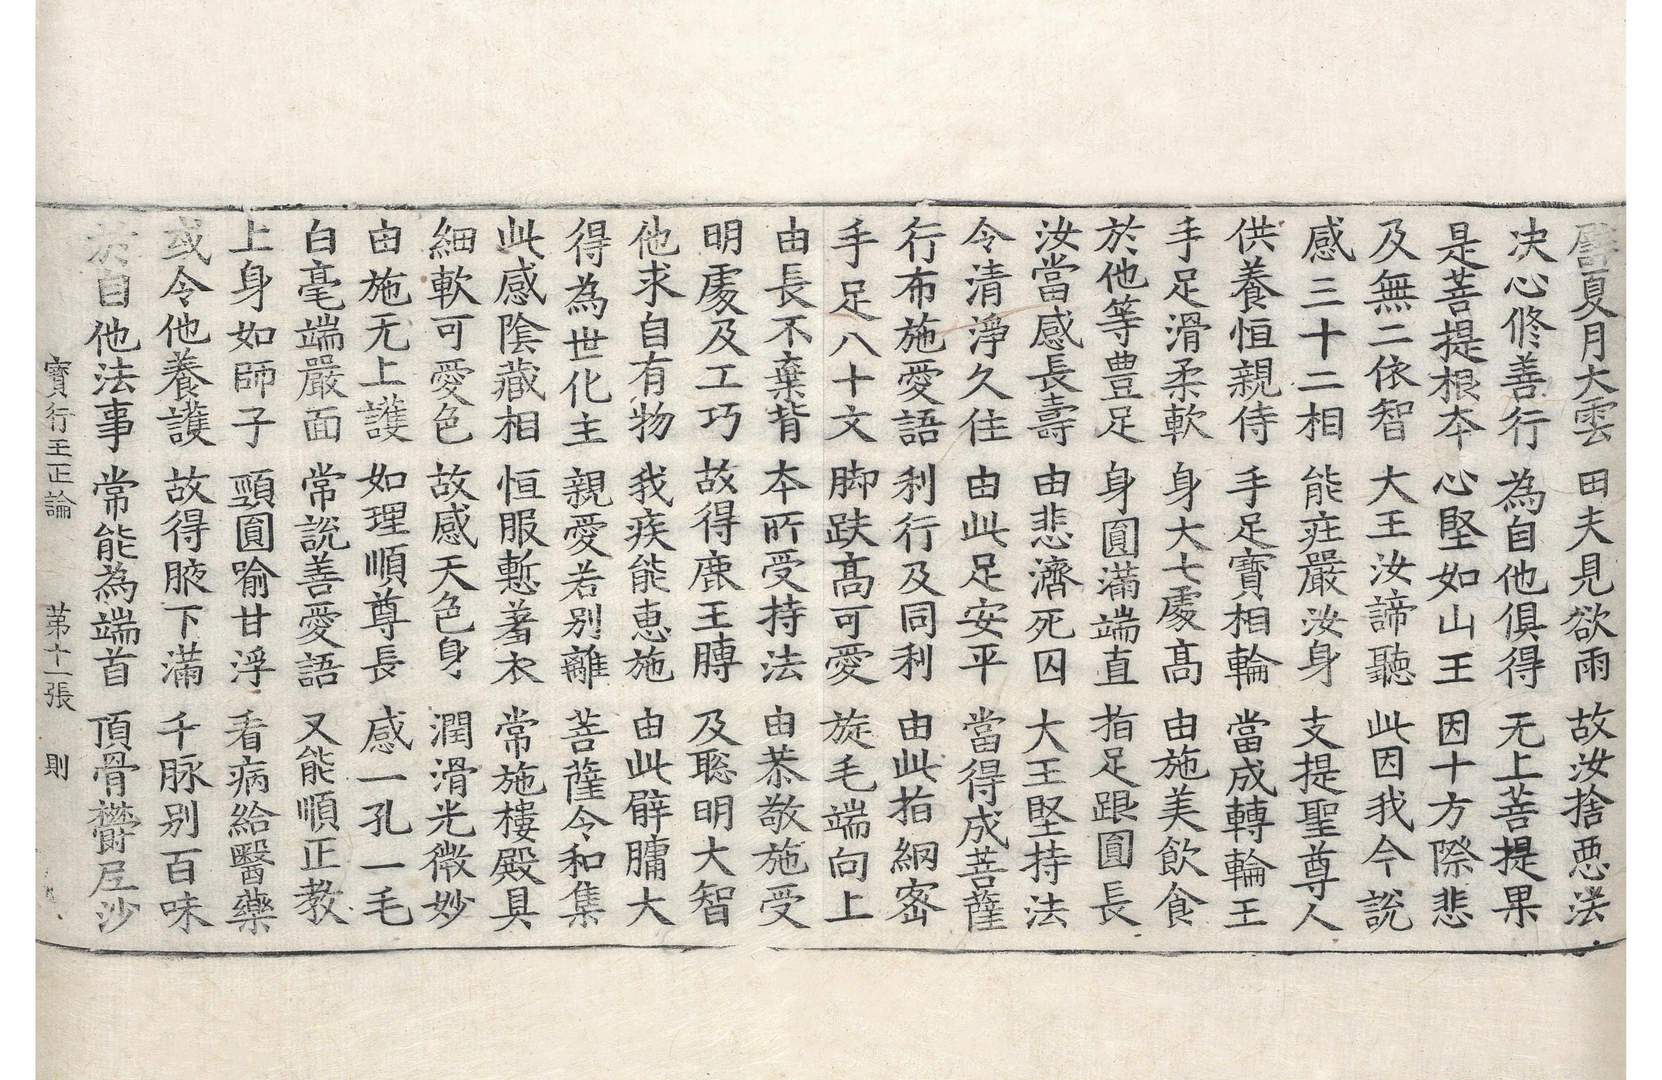 譬夏月大雲　田夫見欲雨　故汝捨惡法
决心修善行　為自他俱得　无上菩提果
是菩提根夲　心堅如山王　因十方際悲
及無二依智　大王汝諦聽　此因我今説
感三十二相　能㽵嚴汝身　支提聖尊人
供養恒親侍　手足寶相輪　當成轉輪王
手足滑柔軟　身大七處髙　由施美飲食
於他等豊足　身圓滿端直　指足跟圓長
汝當感長壽　由悲濟死囚　大王堅持法
令清淨久住　由此足安平　當得成菩薩
行布施愛語　利行及同利　由此指網宻
手足八十文　脚趺髙可愛　旋毛端向上
由長不棄背　夲所受持法　由恭敬施受
明處及工巧　故得鹿王膊　及聡明大智
他求自有物　我疾能恵施　由此臂𦟛大
得為世化主　親愛若别離　菩薩令和集
此感陰藏相　恒服慙著衣　常施樓殿具
細軟可愛色　故感天色身　潤滑光微妙
由施无上護　如理順尊長　感一孔一毛
白毫端嚴面　常説善愛語　又能順正教
上身如師子　頸圓喻甘浮　看病給醫藥
或令他養護　故得腋下滿　千脉别百味
於自他法事　常能為端首　頂骨欝𡰱沙
寳行王正論　苐十一張　則